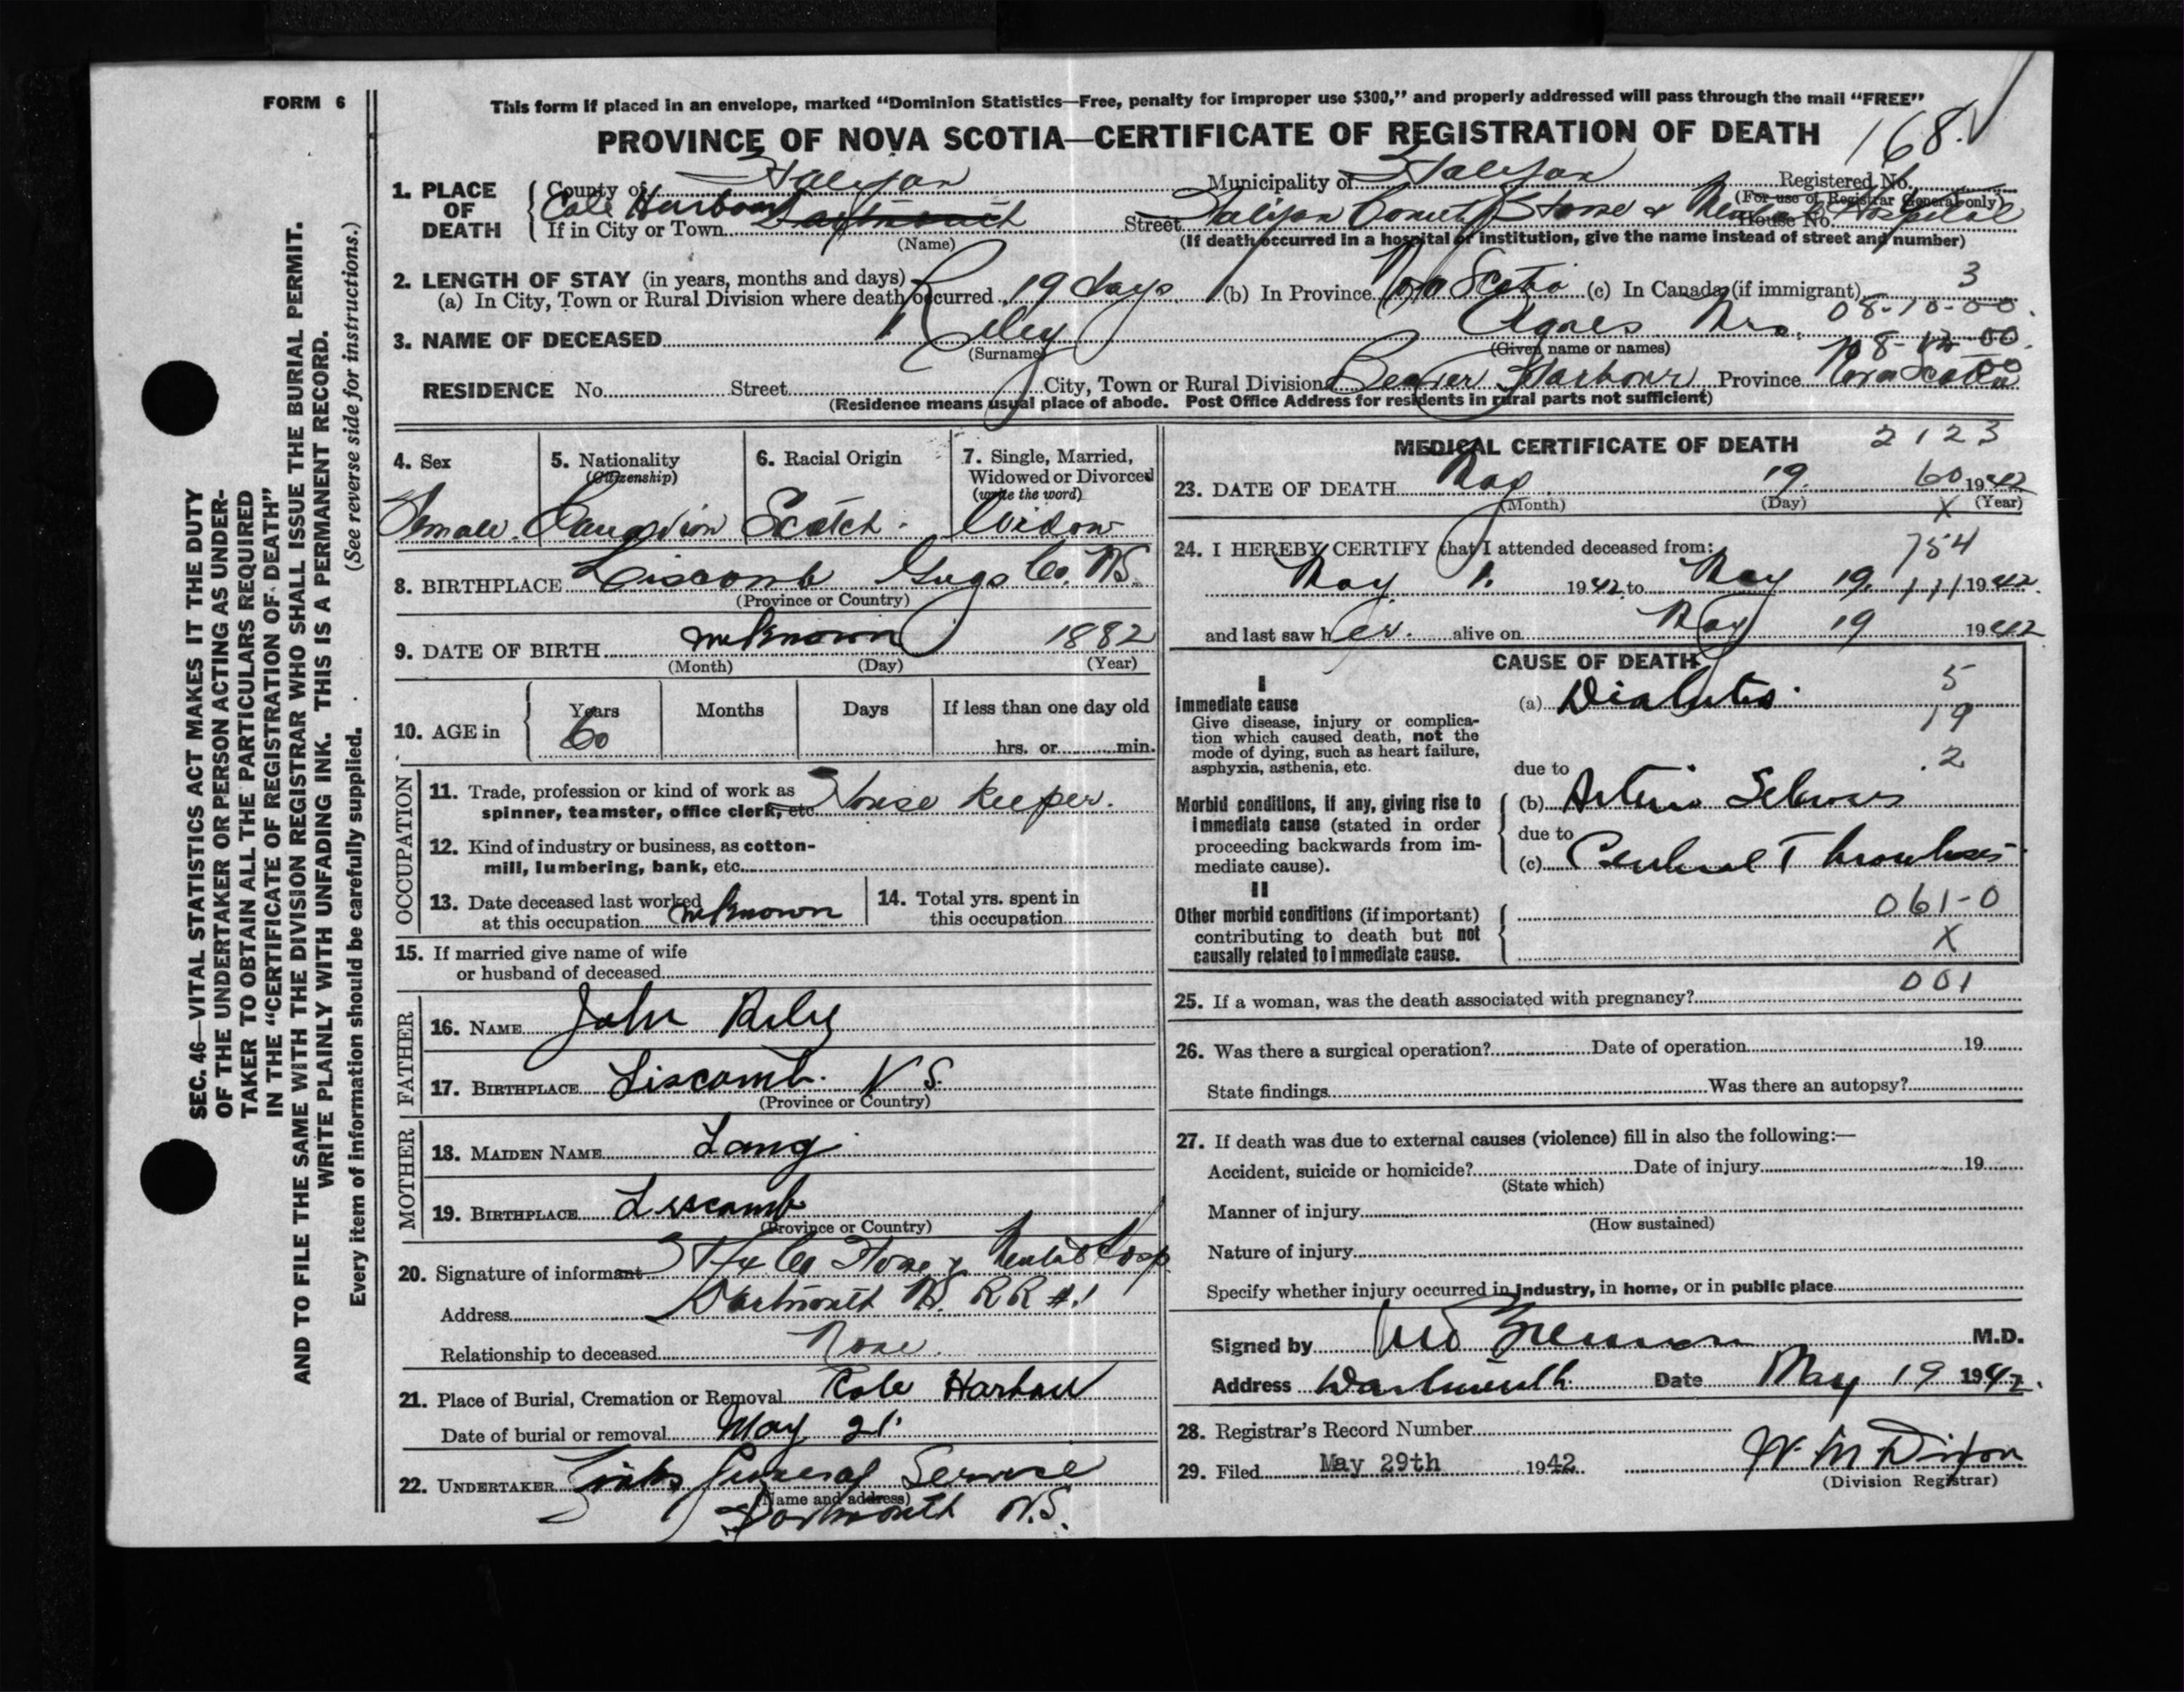 FORM 6
This form if placed in an envelope, marked "Dominion Statistics—Free, penalty for improper use $300," and properly addressed will pass through the mail "FREE"
PROVINCE OF NOVA SCOTIA—CERTIFICATE OF REGISTRATION OF DEATH
168.
1. PLACE OF DEATH
County of Halifax Municipality of Halifax Registered No.
(For use of Registrar General only)
Cole Harbour
If in City or Town Dartmouth Street Halifax County Home & Mental Hospital House No.
(Name) (If death occurred in a hospital or institution, give the name instead of street and number)
2. LENGTH OF STAY (in years, months and days)
(a) In City, Town or Rural Division where death occurred 19 days (b) In Province Nova Scotia (c) In Canada (if immigrant) 3
08-10-00
3. NAME OF DECEASED Riley Agnes Mrs.
(Surname) (Given name or names)
08-12-00
RESIDENCE No. Street City, Town or Rural Division Beaver Harbour Province Nova Scotia
00
(Residence means usual place of abode. Post Office Address for residents in rural parts not sufficient)
4. Sex Female
5. Nationality (Citizenship) Canadian
6. Racial Origin Scotch
7. Single, Married, Widowed or Divorced (write the word) Widow
8. BIRTHPLACE Liscomb Guys Co. N.S.
(Province or Country)
9. DATE OF BIRTH unknown 1882
(Month) (Day) (Year)
10. AGE in Years 60 Months Days If less than one day old hrs. or min.
OCCUPATION
11. Trade, profession or kind of work as spinner, teamster, office clerk, etc. House keeper.
12. Kind of industry or business, as cotton-mill, lumbering, bank, etc.
13. Date deceased last worked at this occupation unknown
14. Total yrs. spent in this occupation
15. If married give name of wife or husband of deceased
FATHER
16. NAME John Riley
17. BIRTHPLACE Liscomb. N.S.
(Province or Country)
MOTHER
18. MAIDEN NAME Lang
19. BIRTHPLACE Liscomb
(Province or Country)
20. Signature of informant Hfx Co Home & Mental Hosp
Address Dartmouth N.S. RR #1
Relationship to deceased None.
21. Place of Burial, Cremation or Removal Cole Harbour
Date of burial or removal May 21.
22. UNDERTAKER Funeral Service
(Name and address)
Dartmouth N.S.
MEDICAL CERTIFICATE OF DEATH 2123
23. DATE OF DEATH May 19. 60 1942
(Month) (Day) (Year)
X
24. I HEREBY CERTIFY that I attended deceased from:
754
May 1. 1942 to May 19. 1942
and last saw her. alive on May 19 1942
CAUSE OF DEATH
I
Immediate cause
Give disease, injury or complication which caused death, not the mode of dying, such as heart failure, asphyxia, asthenia, etc.
(a) Diabetes. 5
19
due to 2
Morbid conditions, if any, giving rise to immediate cause (stated in order proceeding backwards from immediate cause).
(b) Arterio Sclerosis
due to
(c) Cerebral Thrombosis
II
Other morbid conditions (if important) contributing to death but not causally related to immediate cause.
061-0
X
25. If a woman, was the death associated with pregnancy? 001
26. Was there a surgical operation? Date of operation 19
State findings Was there an autopsy?
27. If death was due to external causes (violence) fill in also the following:—
Accident, suicide or homicide? Date of injury 19
(State which)
Manner of injury
(How sustained)
Nature of injury
Specify whether injury occurred in industry, in home, or in public place
Signed by M.D.
Address Dartmouth. Date May 19 1942.
28. Registrar's Record Number
29. Filed May 29th 1942 W. M. Dixon
(Division Registrar)
SEC. 46—VITAL STATISTICS ACT MAKES IT THE DUTY
OF THE UNDERTAKER OR PERSON ACTING AS UNDER-
TAKER TO OBTAIN ALL THE PARTICULARS REQUIRED
IN THE "CERTIFICATE OF REGISTRATION OF DEATH"
AND TO FILE THE SAME WITH THE DIVISION REGISTRAR WHO SHALL ISSUE THE BURIAL PERMIT.
WRITE PLAINLY WITH UNFADING INK. THIS IS A PERMANENT RECORD.
Every item of information should be carefully supplied. (See reverse side for instructions.)